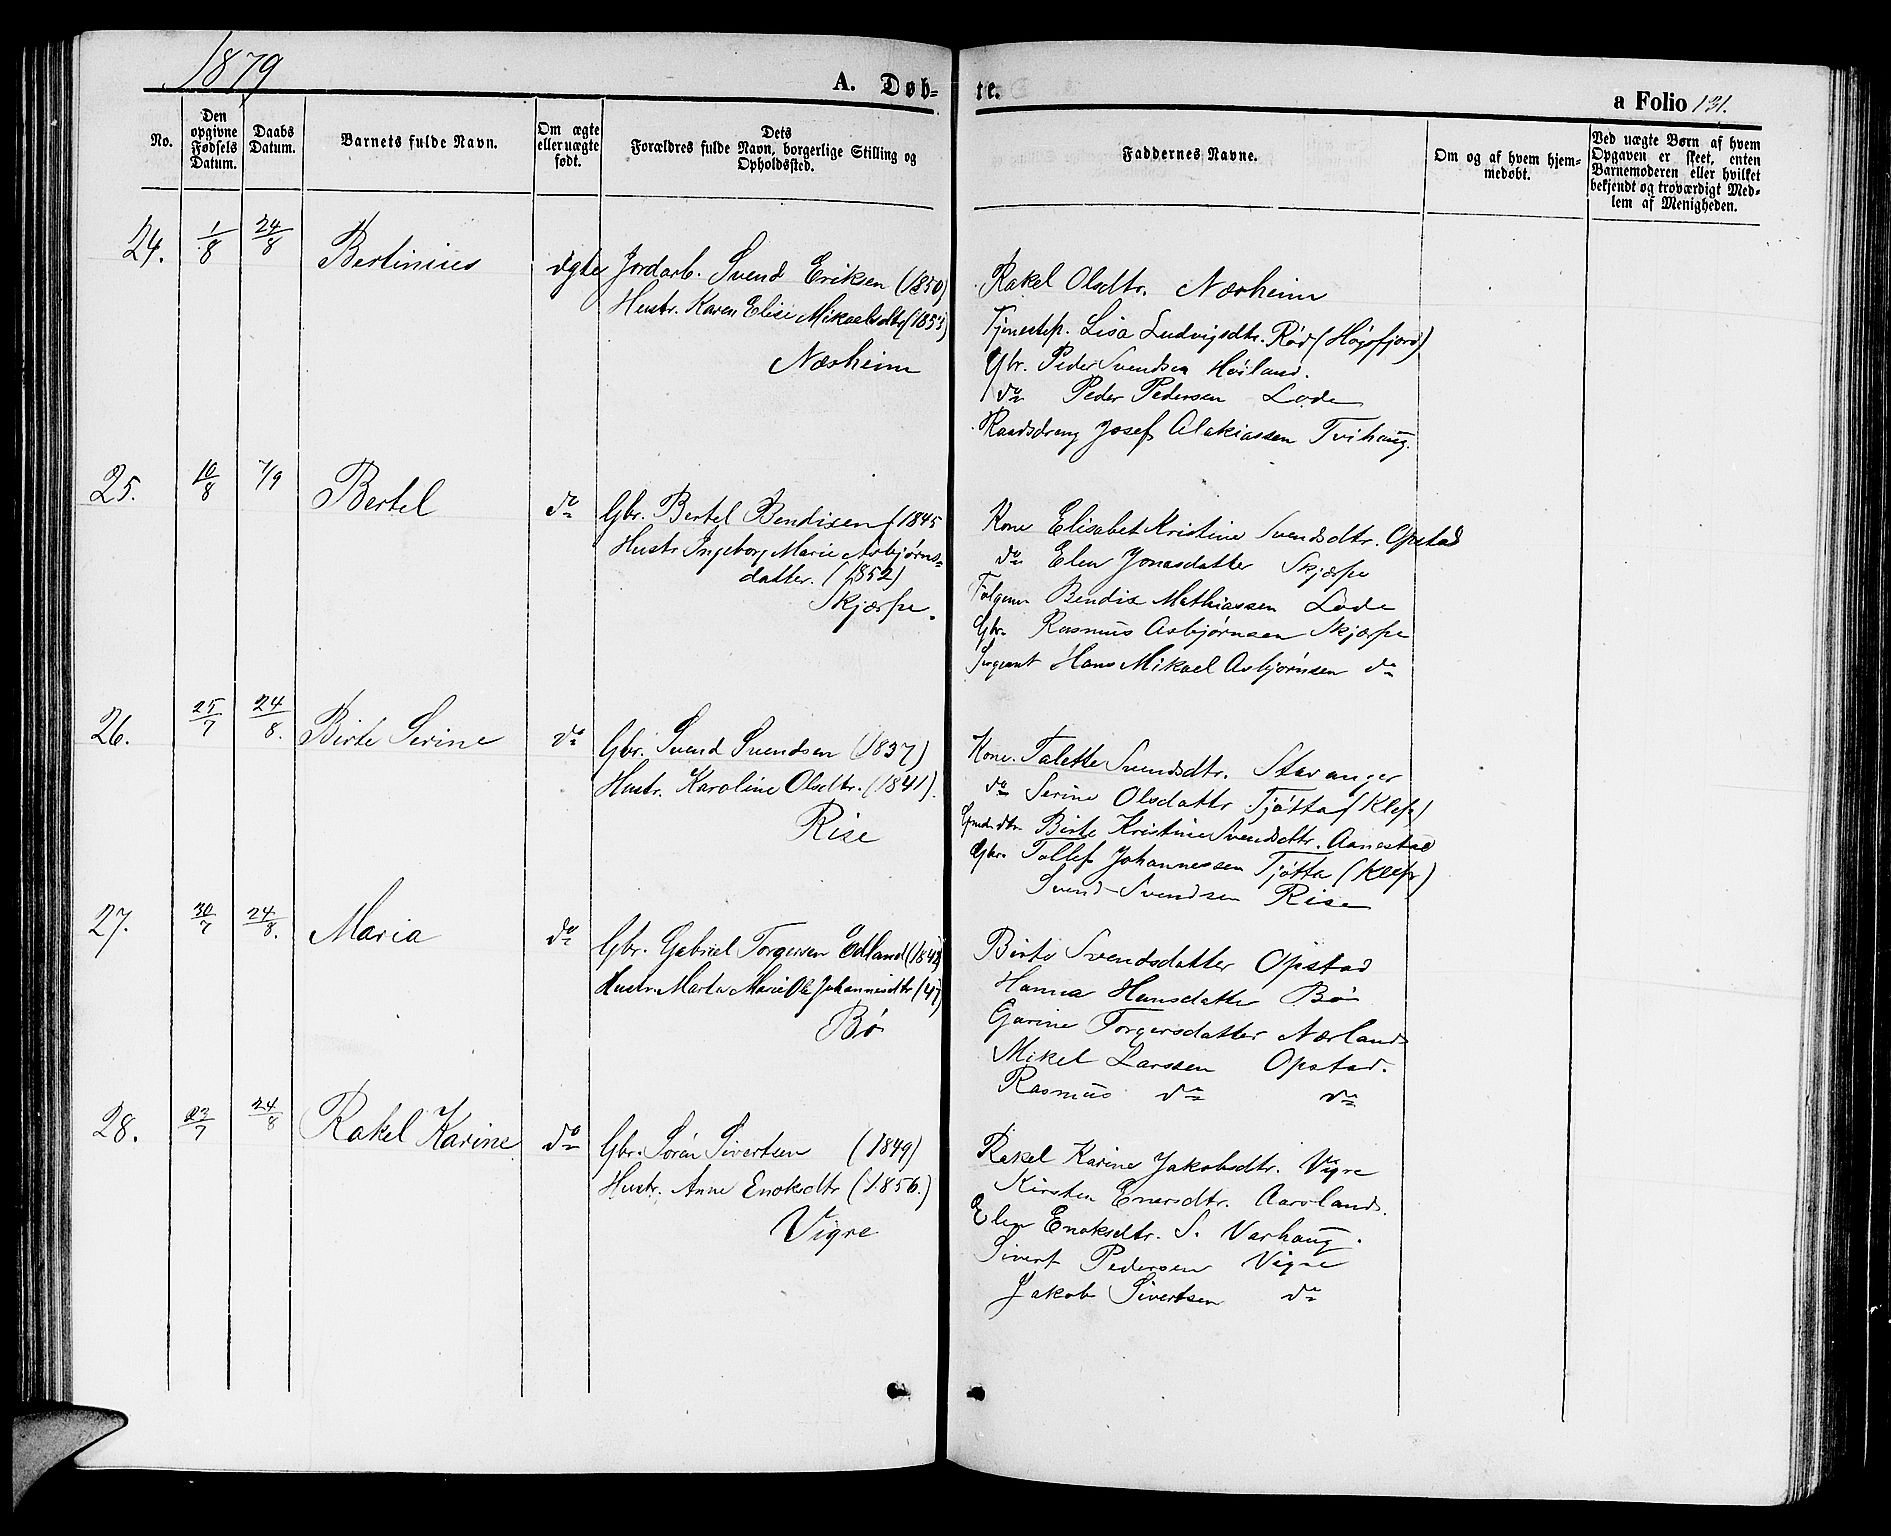 1879
A. Døb-
te.
a Folio 131.
No.
Den opgivne Fødsels Datum.
Daabs Datum.
Barnets fulde Navn.
Om ægte eller uægte født.
Dets Forældres fulde Navn, borgerlige Stilling og Opholdssted.
Faddernes Navne.
Om og af hvem hjem-
medøbt.
Ved uægte Børn af hvem Opgaven er skeet, enten Barnemoderen eller hvilket bekjendt og troværdigt Med-
lem af Menigheden.
24. 1/8 24/8 Bertinius ægte Jordarb. Svend Eriksen (1850)
Hustr. Karen Elise Mikaelsdtr (1853)
Næsheim
Rakel Olsdtr. Næsheim
Tjenestep. Lisa Ludvigsdtr. Rød (Høgsfjord)
Gbr. Peder Svendsen Høiland.
do Peder Pedersen Lode
Josef Alakiassen Tvihaug.
25. 10/8 7/9 Bertel do Gbr. Bertel Bendixen (1845
Hustr Ingeborg Marie Asbjørns-
datter. (1852)
Skjærpe.
Kone Elisabet Kristine Svendsdtr. Opstad
do Elen Jonasdatter Skjærpe
Bendix Mathiassen Lode
Gbr. Rasmus Asbjørnsen Skjærpe
Sergeant Hans Mikael Asbjørnsen do
26. 25/7 24/8. Birte Serine do Gbr. Svend Svendsen (1837)
Hustr. Karoline Olsdtr. (1841).
Rise
Kone. Talette Svendsdtr. Stavanger
do Serine Olsdattr Tjøtta (Klep)
Birte Kristine Svendsdtr. Aanestad
Gbr. Tollef Johannessen Tjøtta (Klep)
Svend Svendsen Rise
27. 30/7 24/8. Maria do Gbr. Gabriel Torgersen Edland (1842)
Hustr. Marta Marie Johannesdtr (47)
Bø
Birte Svendsdatter Opstad
Hanna Hansdatter Bø
Garine Torgersdatter Nærland
Mikel Larssen Opstad.
Rasmus do do
28. 23/7 24/8 Rakel Karine do Gbr. Søren Sivertsen (1849)
Hustr. Anne Enoksdtr (1856.)
Vigre
Rakel Karine Jakobsdtr. Vigre
Kirsten Enersdtr. Aarsland.
Elen Enoksdtr. S. Varhaug.
Sivert Pedersen Vigre
Jakob Sivertsen do